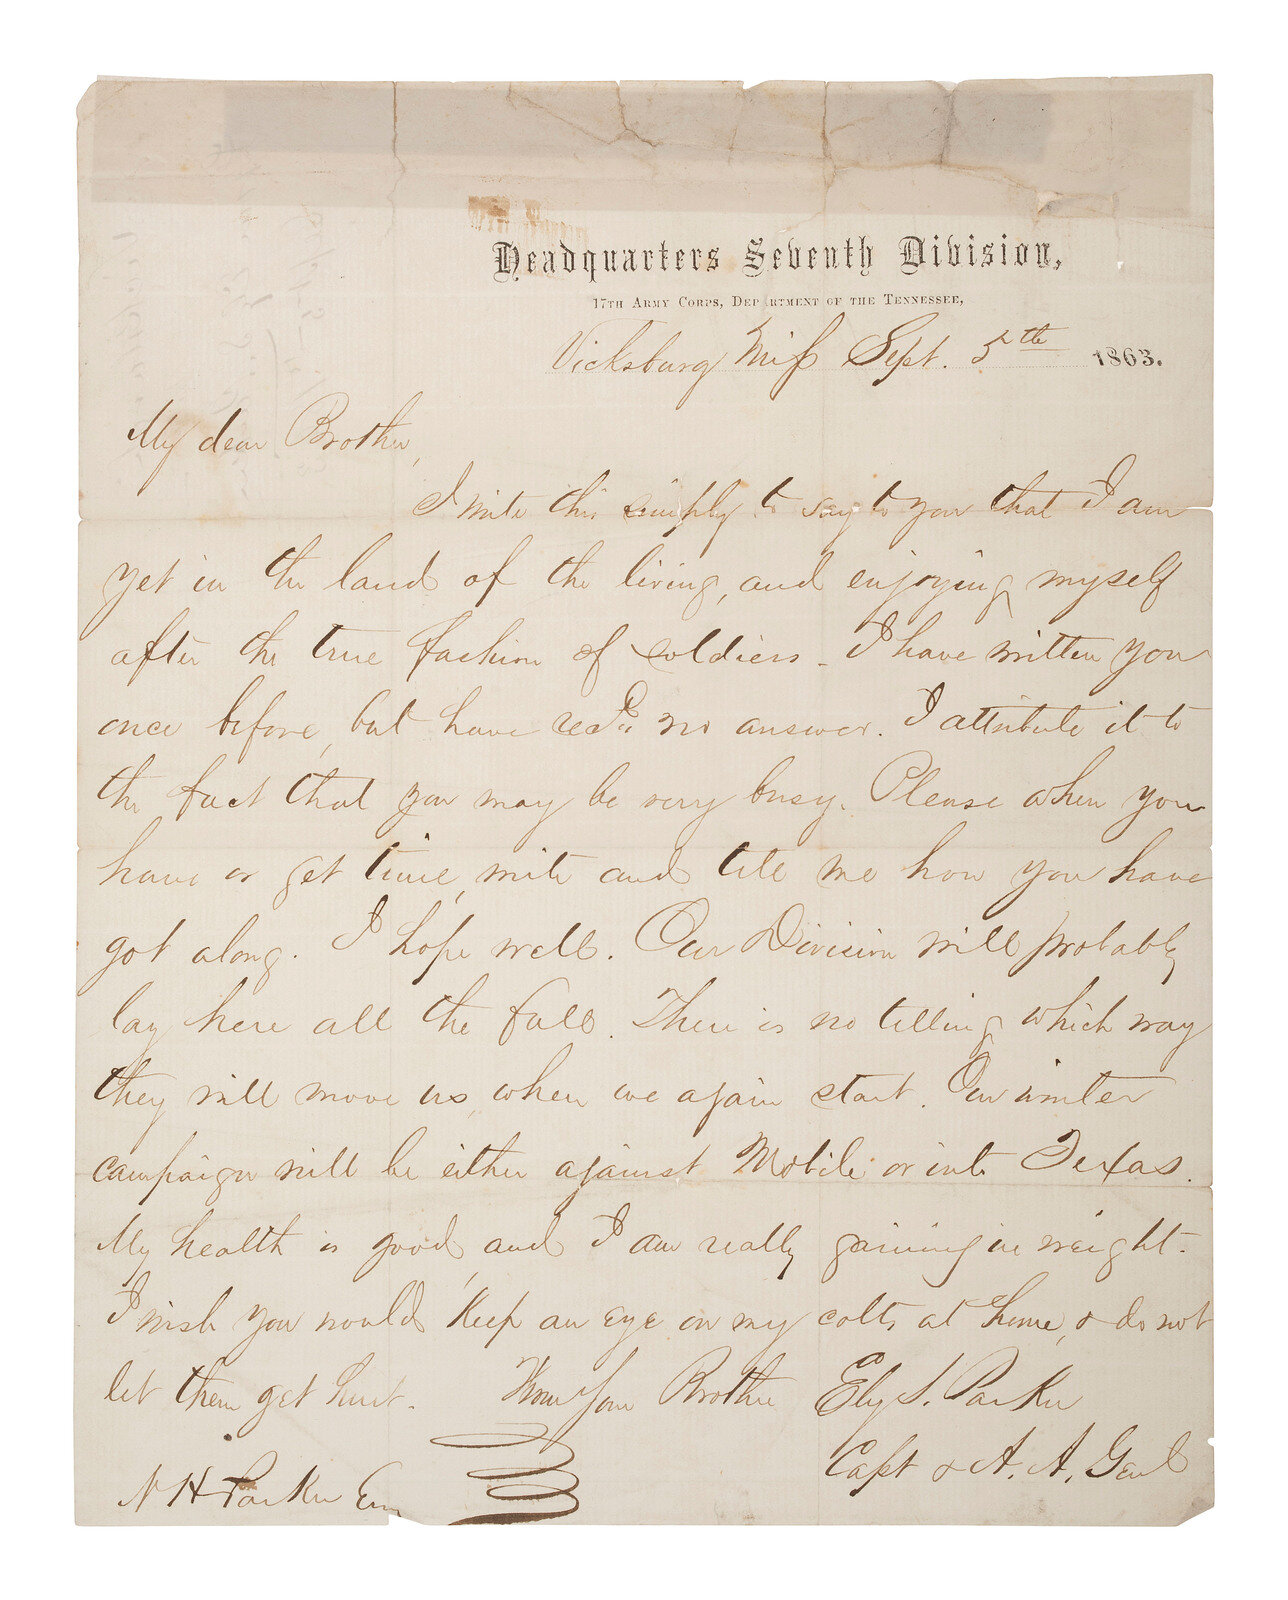 Headquarters Seventh Division,
17th Army Corps, Department of the Tennessee,
Vicksburg Miss Sept. 5th 1863.
My dear Brother,
I write this simply to say to you that I am
yet in the land of the living, and enjoying myself
after the true fashion of soldiers - I have written you
once before, but have recd. no answer. I attribute it to
the fact that you may be very busy. Please when you
have or get time, write and tell me how you have
got along. I hope well. Our Division will probably
lay here all the fall. There is no telling which way
they will move us, when we again start. Our winter
campaign will be either against Mobile or into Texas.
My health is good, and I am really gaining in weight.
I wish you would keep an eye on my colts at home, & do not
let them get hurt. Your Brother Ely S. Parker
Capt & A. A. Genl
N H Parker